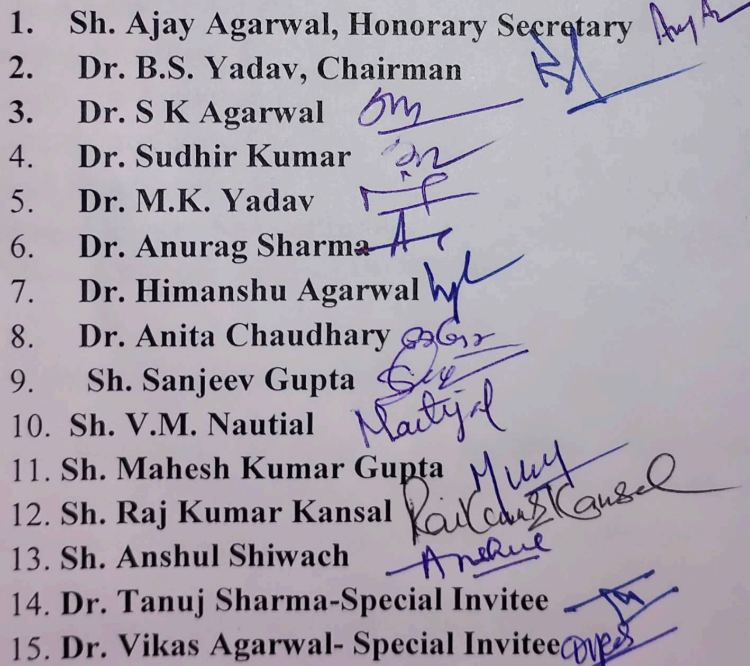 1. Sh. Ajay Agarwal, Honorary Secretary
2. Dr. B.S. Yadav, Chairman
3. Dr. S K Agarwal
4. Dr. Sudhir Kumar
5. Dr. M.K. Yadav
6. Dr. Anurag Sharma
7. Dr. Himanshu Agarwal
8. Dr. Anita Chaudhary
9. Sh. Sanjeev Gupta
10. Sh. V.M. Nautial
11. Sh. Mahesh Kumar Gupta
12. Sh. Raj Kumar Kansal
13. Sh. Anshul Shiwach
14. Dr. Tanuj Sharma-Special Invitee
15. Dr. Vikas Agarwal- Special Invitee